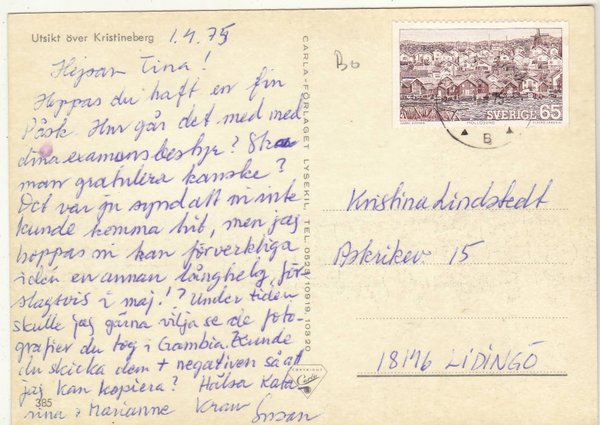 Utsikt över Kristineberg
1.4.75
Hejsan Tina!
Hoppas du haft en fin
Påsk. Hur går det med med
dina examensbestyr? Ska
man gratulera kanske?
Det var ju synd att ni inte
kunde komma hit, men jag
hoppas ni kan förverkliga
idén en annan långhelg, för-
slagsvis i maj!? Under tiden
skulle jag gärna vilja se de foto-
grafier du tog i Gambia. Kunde
du skicka dem + negativen så att
jag kan kopiera? Hälsa Kata-
rina + Marianne Kram Susan
385
CARLA-FÖRLAGET LYSEKIL. TEL. 0523/10919, 10320
COPYRIGHT
Carla
Bo
MOLLÖSUND
SVERIGE 65
B
Kristina Lindstedt
Askrikev. 15
18146 LIDINGÖ